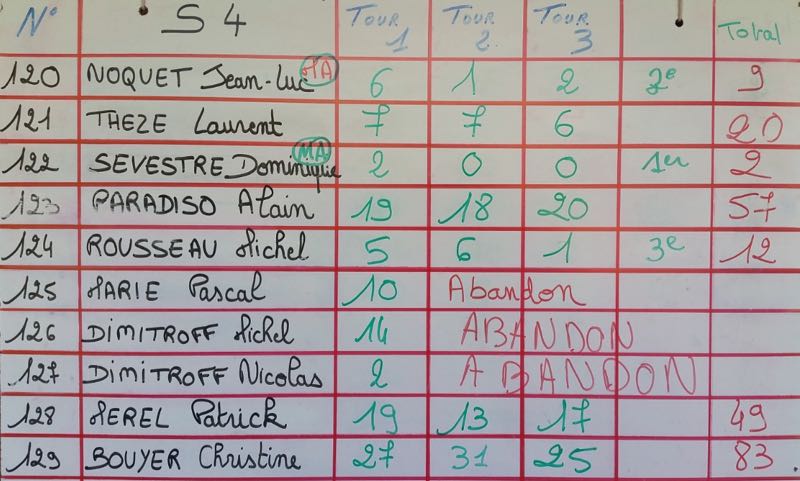 N° S4 Tour 1 Tour 2 Tour 3 Total
120 NOQUET Jean-Luc MA 6 1 2 2e 9
121 THEZE Laurent 7 7 6 20
122 SEVESTRE Dominique MA 2 0 0 1er 2
123 PARADISO Alain 19 18 20 57
124 ROUSSEAU Michel 5 6 1 3e 12
125 MARIE Pascal 10 Abandon
126 DIMITROFF Michel 14 ABANDON
127 DIMITROFF Nicolas 2 ABANDON
128 MEREL Patrick 19 13 17 49
129 BOUYER Christine 27 31 25 83